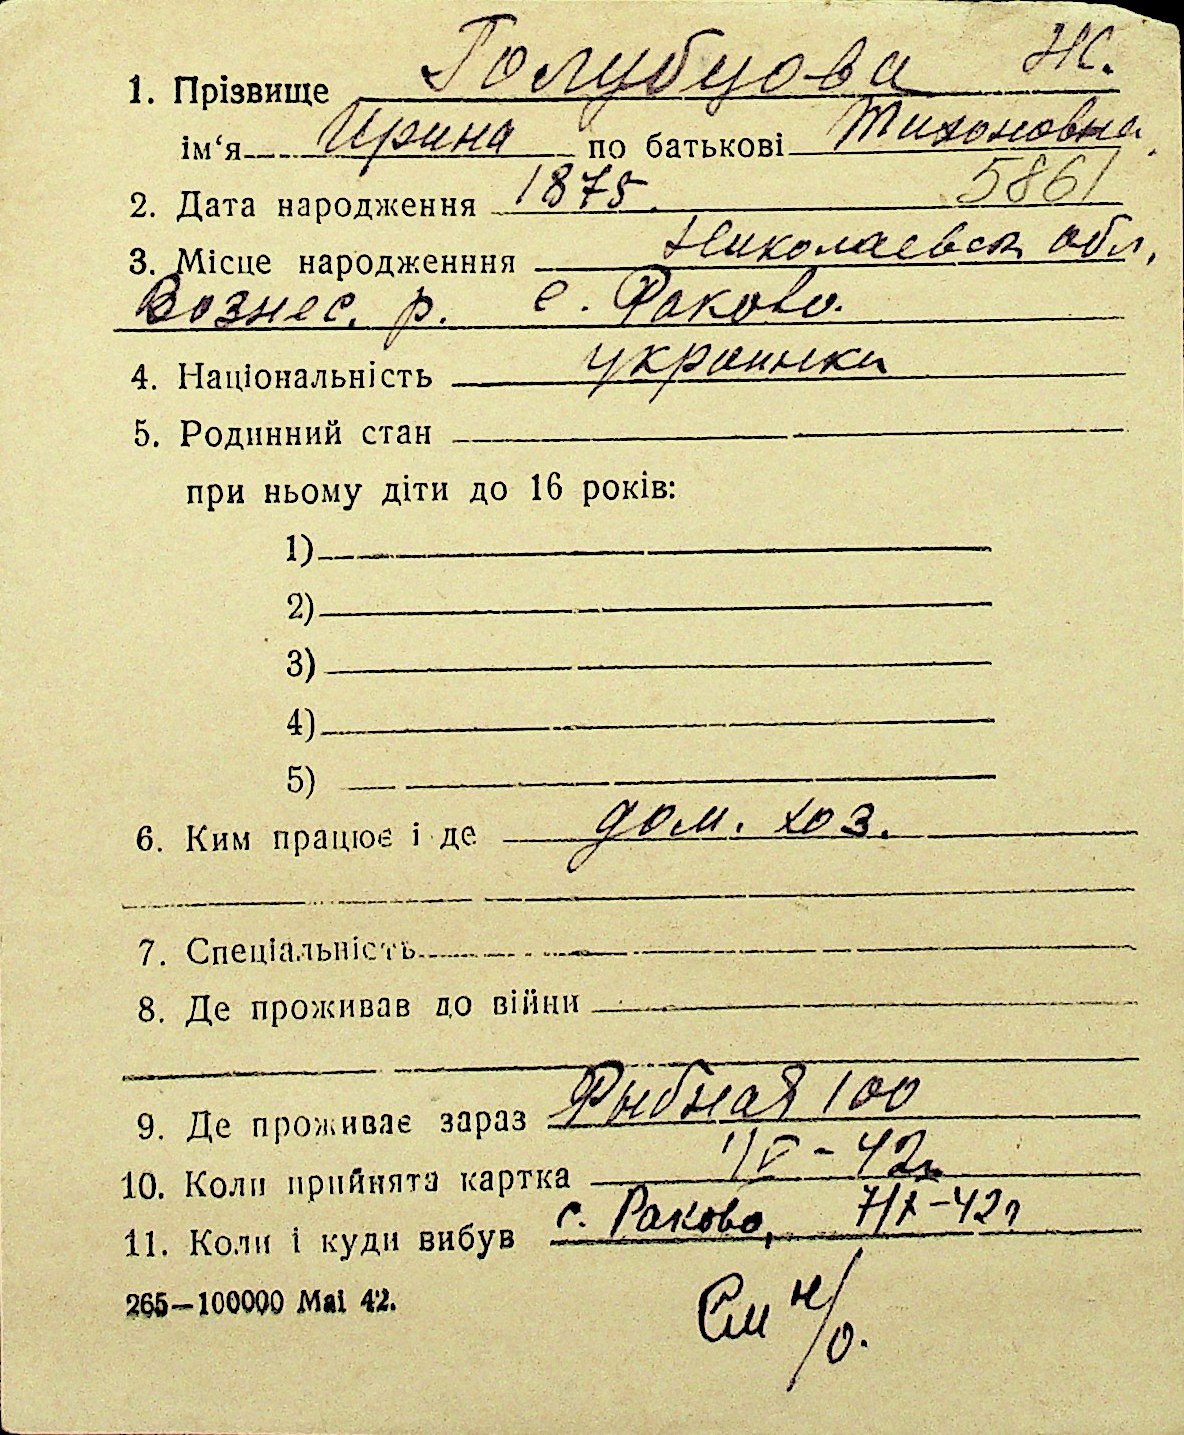 1. Прізвище Голубцова Ж.
ім‘я Ирина по батькові Тихоновна
2. Дата народження 1875. 5861
3. Місце народженння Николаевск обл.
Вознес. р. с. Раково.
4. Національність украинка
5. Родинний стан
при ньому діти до 16 років:
1)
2)
3)
4)
5)
6. Ким працює і де дом. хоз.
7. Спеціальність
8. Де проживав до війни
9. Де проживає зараз Рыбная 100
10. Коли прийнята картка -42г
11. Коли і куди вибув с. Раково, 7/IX-42г
265—100000 Mai 42.
См н/о.